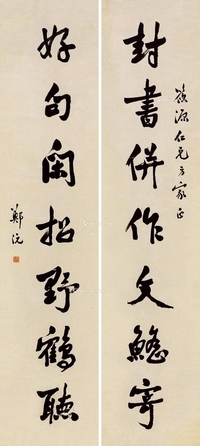 源仁兄方家正
封書併作文鰩寄
好句閑招野鶴聽
鄭沅